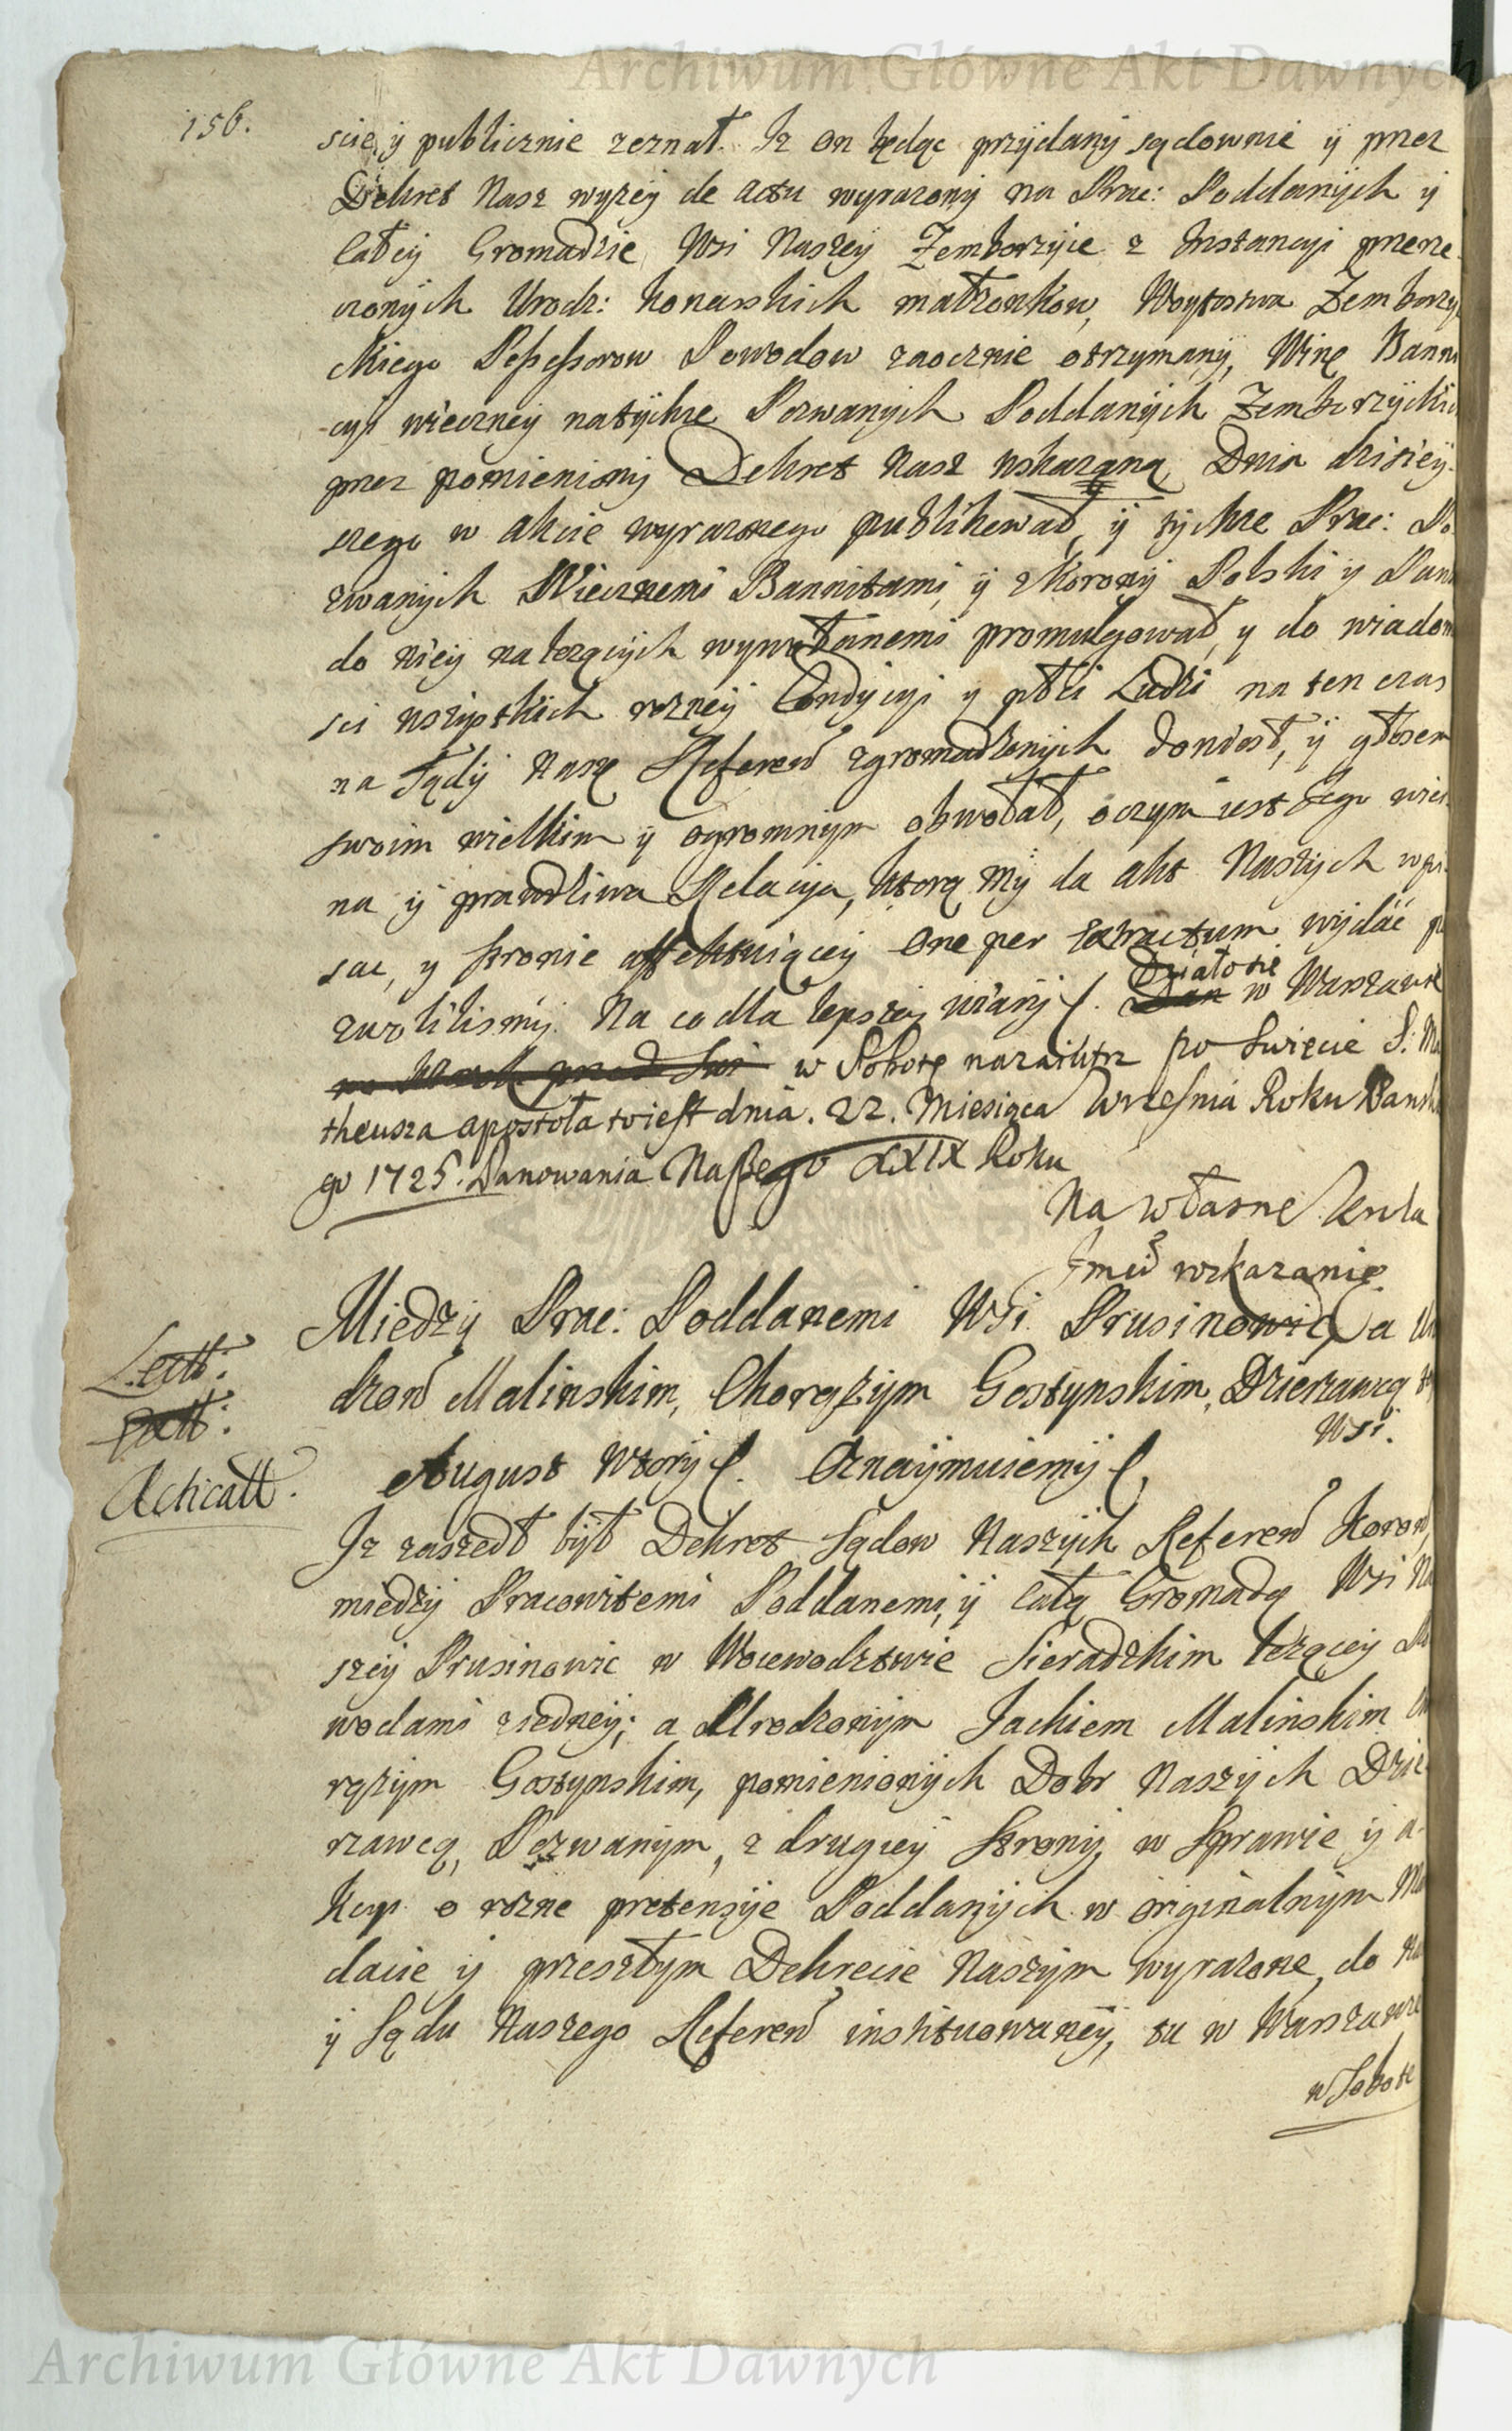 Archiwum Główne Akt Dawnych
156.
scie, ÿ publicznie zeznał. Iz on będąc przÿdanÿ sądownie ÿ przez
Dekret Nasz wyzeÿ de actu wyrazonÿ na Prac: Poddanÿch ÿ
Całeÿ Gromadzie Wsi Naszeÿ Zemborzÿce z Instancÿi przerze
czonÿch Urodz: Konarskich małzonkow, Woytostwa Zemborzy
ckiego Possessorow Powodow zaocznie otrzymanÿ, Winę Banni
cÿi wieczneÿ natÿchze Pozwanÿch Poddanÿch Zemborzÿckich
przez pomienionÿ Dekret Nasz wskazaną, Dnia dzisieÿ-
szego w akcie wyrazonego publikował, ÿ tÿchze Prac: Po
zwanÿch Wiecznemi Bannitami, ÿ z Koronÿ Polski y Pan
do nieÿ nalezącÿch wywołanemi promulgował, y do wiadom
sci wszÿstkich rozneÿ Condÿcÿi y płci Ludzi na ten czas
na Sądÿ Nasze Referen zgromadzonÿch doniosł, ÿ głosem
swoim wielkim ÿ ogromnÿm obwołał, oczym iest Jego wier
na ÿ prawdziwa Relacya, ktorą Mÿ do akt Naszÿch wpi
sac, y stronie affektuiąceÿ one per extractum wÿdać po
zwolilismÿ. Na co dla lepszeÿ wiarÿ. Działo się w Warszawie
w Sobotę nazaiutrz po Swięcie S. Ma
theusza apostoła toiest dnia. 22. Miesiąca Wrzesnia Roku Pansk
go 1725. Panowania Naszego XXIX Roku
Na własne Kro̅la
Jmci wskazanie
Międzÿ Prac: Poddanemi Wsi Prusinowic, a Uro
dzon Malinskim, Chorązÿm Gostynskim, Dzierzawcą tey
Wsi.
Lectt:
Acticatt.
August Wtorÿ. Oznaÿmuiemÿ,
Iz zaszedł bÿł Dekret Sądow Naszÿch Referen Koron,
międzÿ Pracowitemi Poddanemi, ÿ całą Gromadą Wsi Na
szeÿ Prusinowic w Woiewodztwie Sieradzkim leząceÿ Po
wodami z iedneÿ; a Urodzonÿm Jackiem Malinskim Cho
rązÿm Gostynskim, pomienionÿch Dobr Naszÿch Dzie
rzawcą, Pozwanÿm, z drugieÿ Stronÿ, w Sprawie ÿ a-
kcÿi o rozne pretensÿe Poddanÿch w orÿginalnÿm Man
dacie ÿ przeszłÿm Dekrecie Naszÿm wyrazone, do Nas
ÿ Sądu Naszego Referen instituowaneÿ, tu w Warszawie
w Sobotę
Archiwum Główne Akt Dawnych